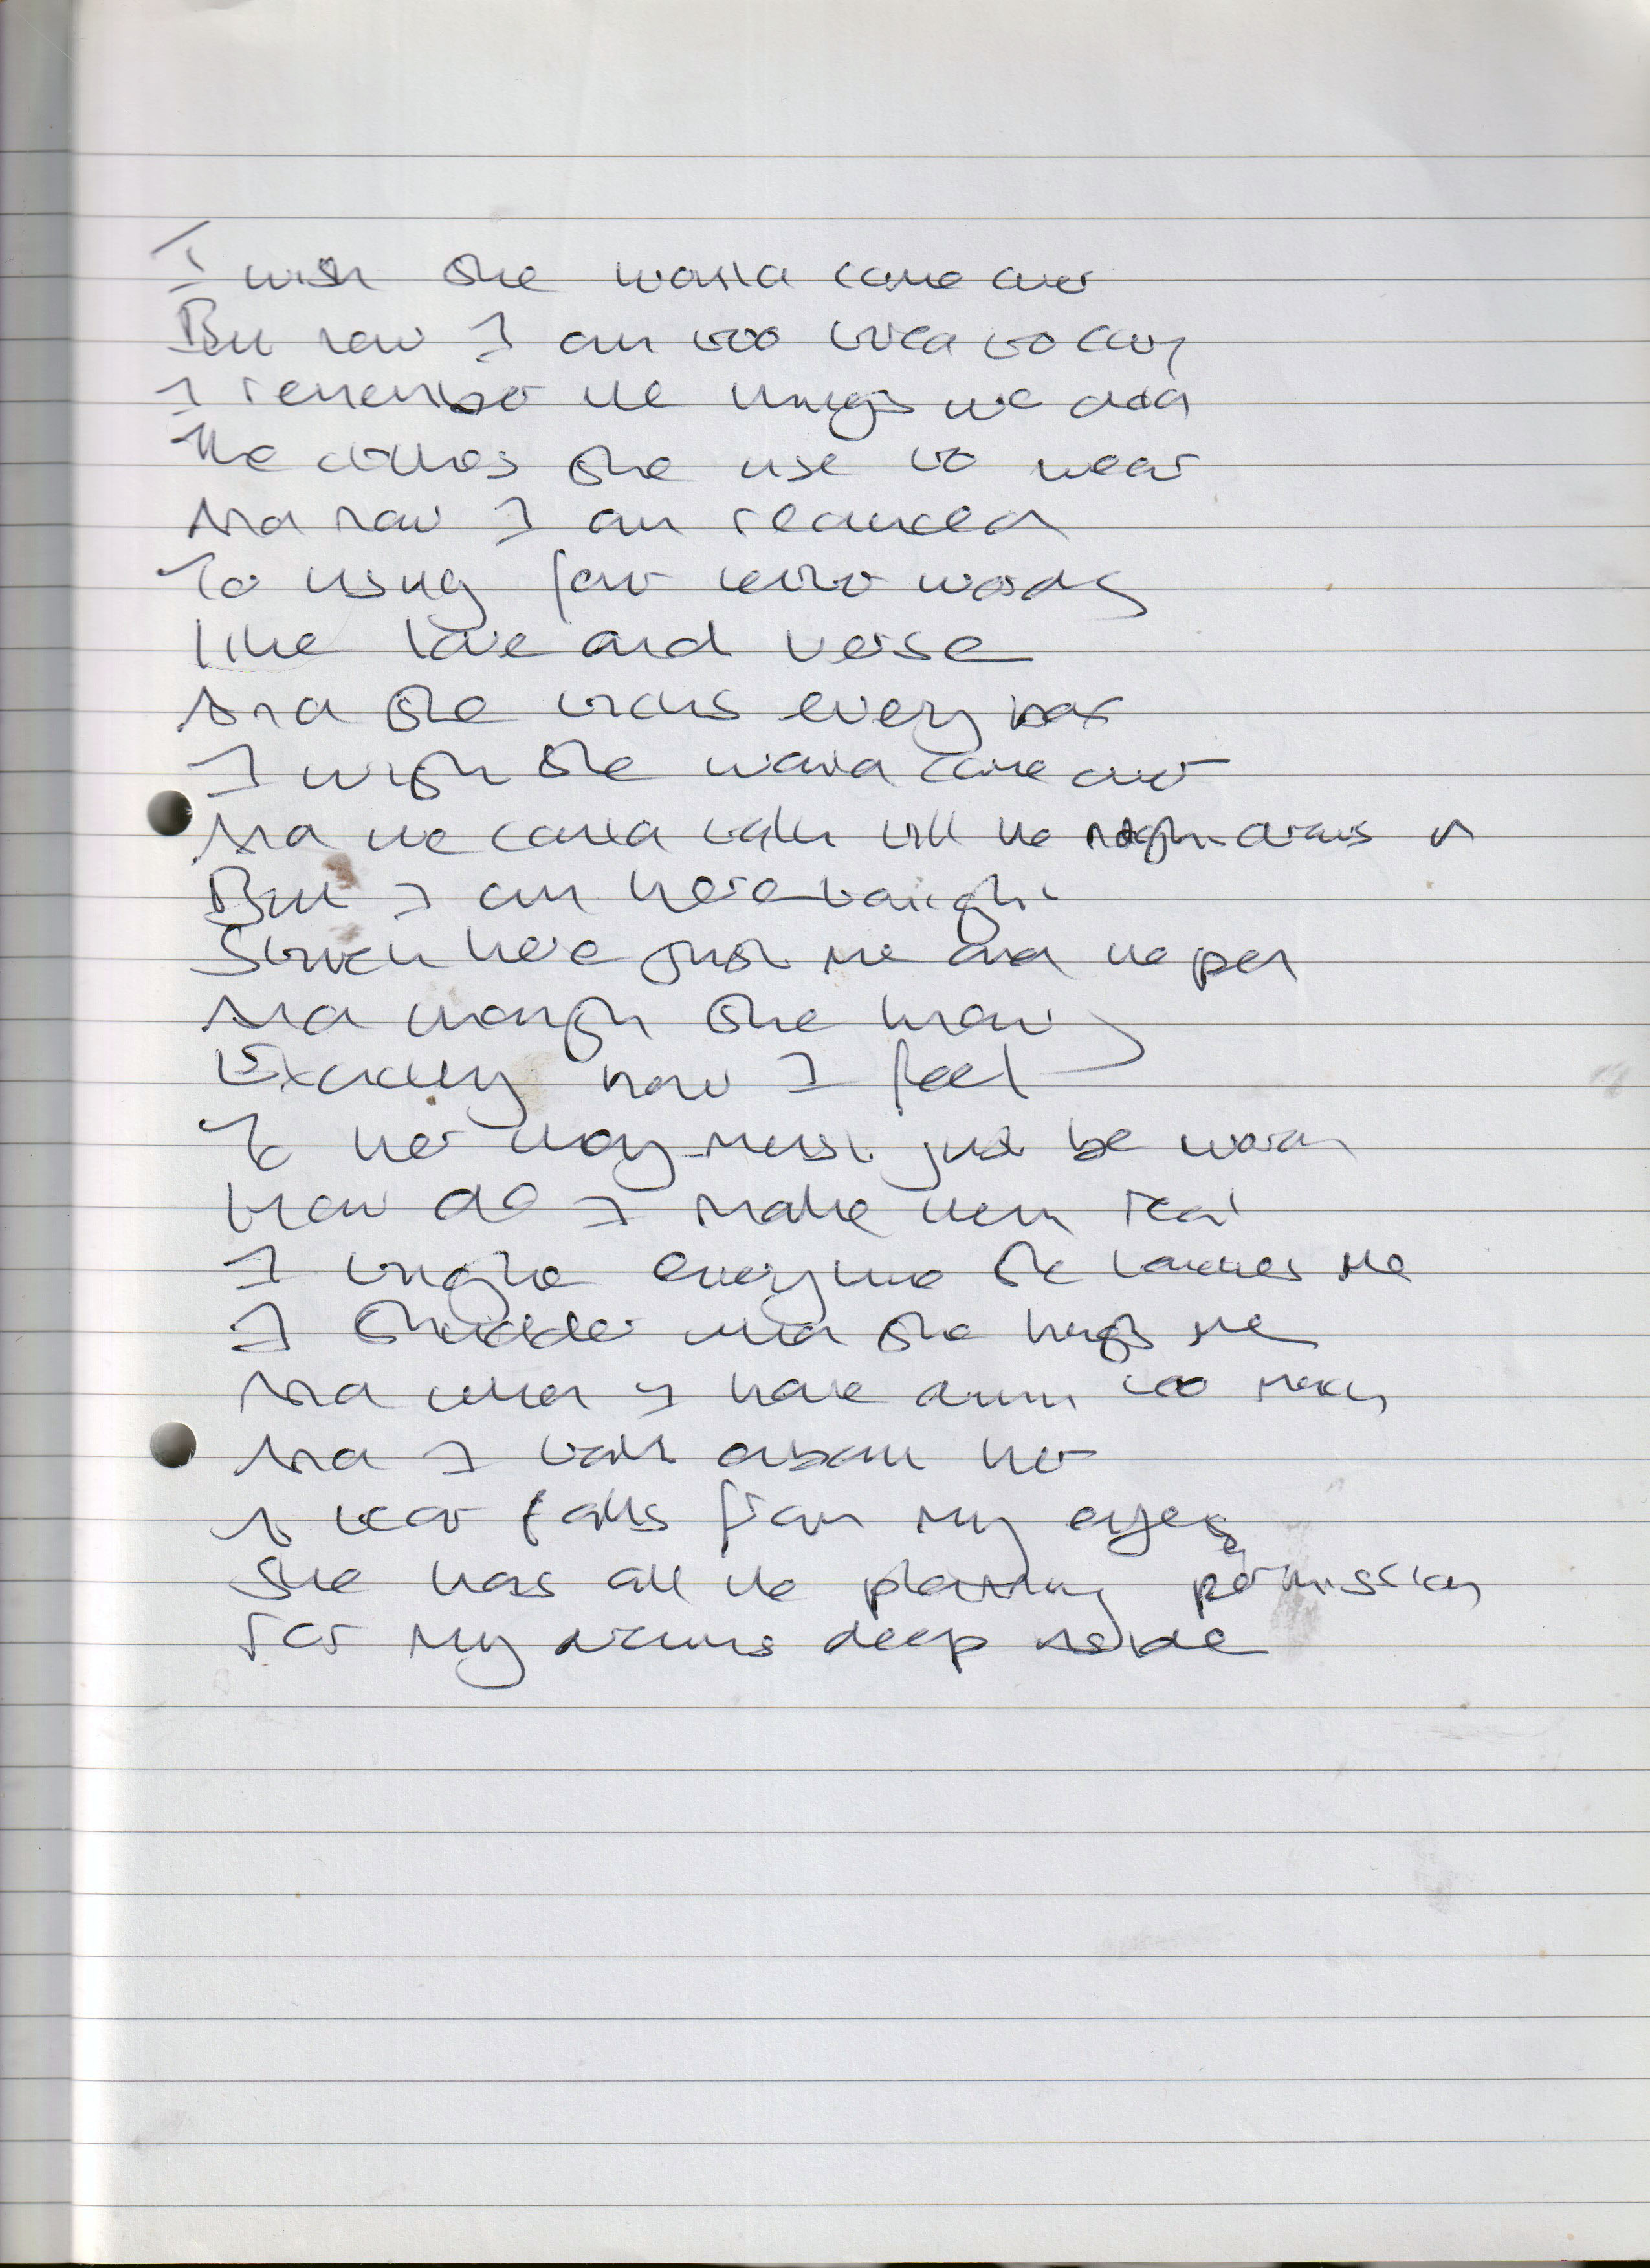 I wish she would come over
But now I am too tired to cry
I remember the things we did
The clothes she use to wear
And now I am reduced
To using four letter words
like love and verse
And she ticks every box
I wish she would come over
And we could talk till the night draws in
But I am here tonight
Stuck here just me and the pen
And though she knows
Exactly how I feel
To her they must just be words
How do I make them real
I tingle everytime she touches me
I shudder when she hugs me
And when I have drunk too much
And I talk about her
A tear falls from my eyes
She has all the planning permission
For my dreams deep inside